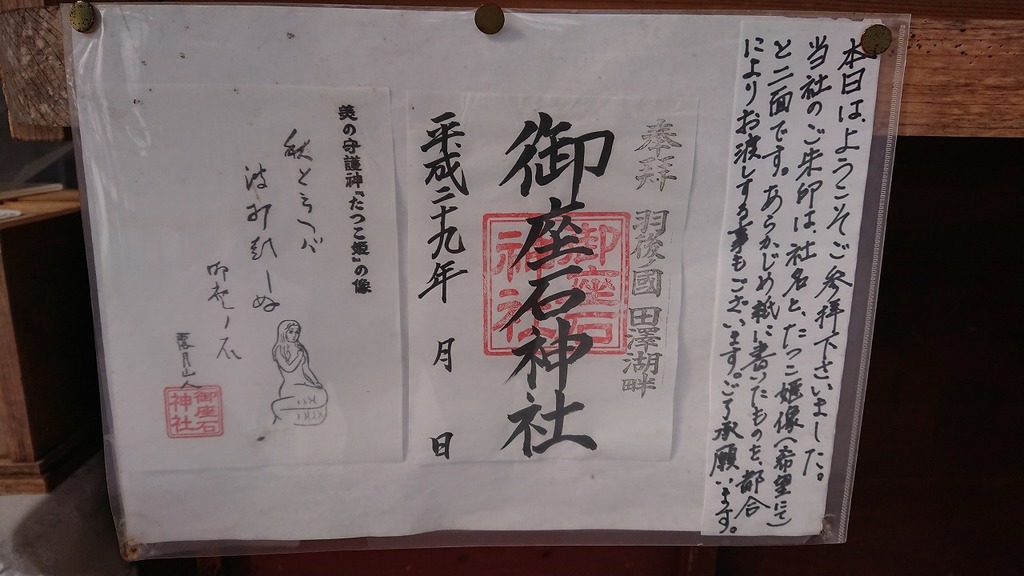 本日は、ようこそご参拝下さいました。
当社のご朱印は、社名と、たつこ姫像(希望にて)
と二面です。あらかじめ紙に書いたものを、都合
によりお渡しする事もございます。ご了承願います。
奉拝 羽後國田澤湖畔
御座石神社
御座石
神社
平成二十九年 月 日
美の守護神『たつこ姫』の像
御座石
神社